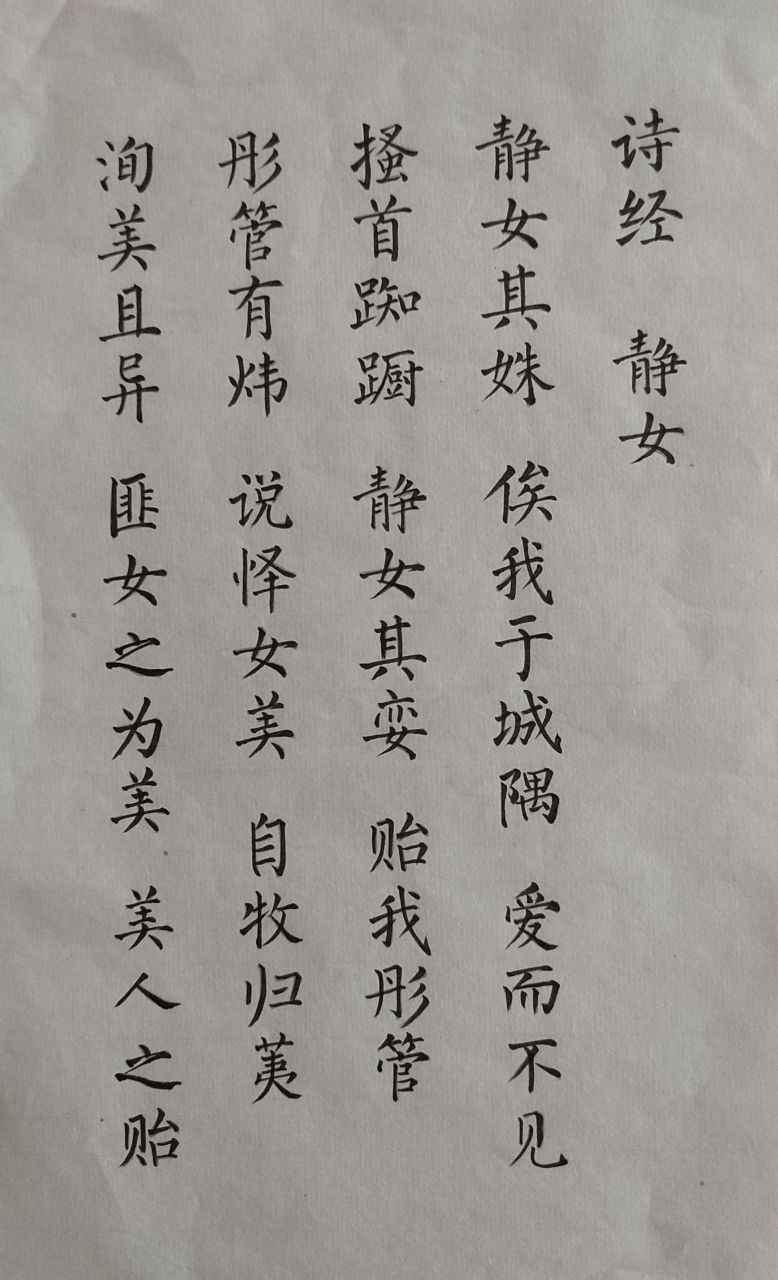 诗经 静女
静女其姝 俟我于城隅 爱而不见
搔首踟蹰 静女其娈 贻我彤管
彤管有炜 说怿女美 自牧归荑
洵美且异 匪女之为美 美人之贻